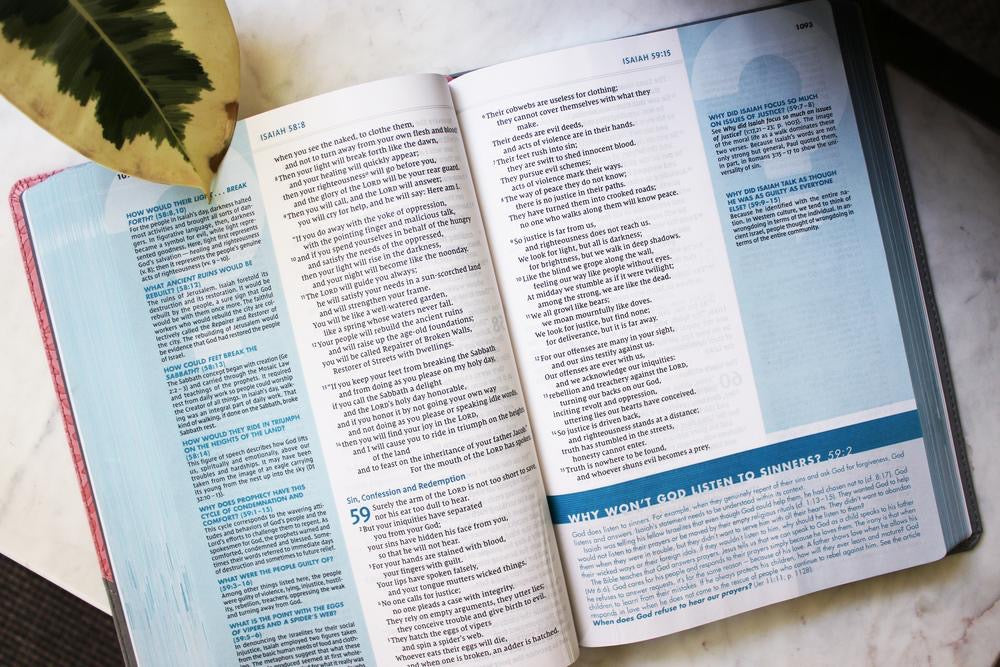 ISAIAH 58:8
HOW WOULD THEIR LIGHT . . . BREAK
FORTH? (58:8,10)
For the people in Isaiah's day, darkness halted
most activities and brought all sorts of dan-
gers. In figurative language, then, darkness
became a symbol for evil, while light repre-
sented goodness. Here, light first represents
God's salvation — healing and righteousness
(v. 8); then it represents the people's genuine
acts of righteousness (vv. 9–10).
WHAT ANCIENT RUINS WOULD BE
REBUILT? (58:12)
The ruins of Jerusalem. Isaiah foretold its
destruction and its restoration. It would be
rebuilt by the people, a sure sign that God
would be with them once more. The faithful
workers who would rebuild the city are col-
lectively called the Repairer and Restorer of
the city. The rebuilding of Jerusalem would
be evidence that God had restored the people
of Israel.
HOW COULD FEET BREAK THE
SABBATH? (58:13)
The Sabbath concept began with creation (Ge
2:2–3) and carried through the Mosaic Law
and teachings of the prophets. It required
rest from daily work so people could worship
the Creator of all things. In Isaiah's day, walk-
ing was an integral part of daily work. That
kind of walking, if done on the Sabbath, broke
Sabbath rest.
HOW WOULD THEY RIDE IN TRIUMPH
ON THE HEIGHTS OF THE LAND?
(58:14)
This figure of speech describes how God lifts
us, spiritually and emotionally, above our
troubles and hardships. It may have been
taken from the image of an eagle carrying
its young from the nest up into the sky (Dt
32:10–13).
WHY DOES PROPHECY HAVE THIS
CYCLE OF CONDEMNATION AND
COMFORT? (59:1–15)
This cycle corresponds to the wavering atti-
tudes and behaviors of God's people and the
Lord's efforts to challenge them to repent. As
spokesmen for God, the prophets warned and
comforted, condemned and blessed. Some-
times their words referred to immediate days
of destruction and sometimes to future relief.
WHAT WERE THE PEOPLE GUILTY OF?
(59:3–16)
Among other things listed here, the people
were guilty of violence, lying, injustice, hostil-
ity, rebellion, treachery, oppressing the weak
and turning away from God.
WHAT IS THE POINT WITH THE EGGS
OF VIPERS AND A SPIDER'S WEB?
(59:5–6)
In denouncing the Israelites for their social
injustice, Isaiah employed two figures taken
from the basic human needs of food and cloth-
ing. The metaphors suggest that what these
when you see the naked, to clothe them,
and not to turn away from your own flesh and blood?
8 Then your light will break forth like the dawn,
and your healing will quickly appear;
then your righteousness will go before you,
and the glory of the LORD will be your rear guard.
9 Then you will call, and the LORD will answer;
you will cry for help, and he will say: Here am I.
"If you do away with the yoke of oppression,
with the pointing finger and malicious talk,
10 and if you spend yourselves in behalf of the hungry
and satisfy the needs of the oppressed,
then your light will rise in the darkness,
and your night will become like the noonday.
11 The LORD will guide you always;
he will satisfy your needs in a sun-scorched land
and will strengthen your frame.
You will be like a well-watered garden,
like a spring whose waters never fail.
12 Your people will rebuild the ancient ruins
and will raise up the age-old foundations;
you will be called Repairer of Broken Walls,
Restorer of Streets with Dwellings.
13 "If you keep your feet from breaking the Sabbath
and from doing as you please on my holy day,
if you call the Sabbath a delight
and the LORD's holy day honorable,
and if you honor it by not going your own way
and not doing as you please or speaking idle words,
14 then you will find your joy in the LORD,
and I will cause you to ride in triumph on the heights
of the land
and to feast on the inheritance of your father Jacob."
For the mouth of the LORD has spoken.
Sin, Confession and Redemption
59 Surely the arm of the LORD is not too short to save,
nor his ear too dull to hear.
2 But your iniquities have separated
you from your God;
your sins have hidden his face from you,
so that he will not hear.
3 For your hands are stained with blood,
your fingers with guilt.
Your lips have spoken falsely,
and your tongue mutters wicked things.
4 No one calls for justice;
no one pleads a case with integrity.
They rely on empty arguments, they utter lies;
they conceive trouble and give birth to evil.
5 They hatch the eggs of vipers
and spin a spider's web.
Whoever eats their eggs will die,
and when one is broken, an adder is hatched.
ISAIAH 59:15
1093
6 Their cobwebs are useless for clothing;
they cannot cover themselves with what they
make.
Their deeds are evil deeds,
and acts of violence are in their hands.
7 Their feet rush into sin;
they are swift to shed innocent blood.
They pursue evil schemes;
acts of violence mark their ways.
8 The way of peace they do not know;
there is no justice in their paths.
They have turned them into crooked roads;
no one who walks along them will know peace.
9 So justice is far from us,
and righteousness does not reach us.
We look for light, but all is darkness;
for brightness, but we walk in deep shadows.
10 Like the blind we grope along the wall,
feeling our way like people without eyes.
At midday we stumble as if it were twilight;
among the strong, we are like the dead.
11 We all growl like bears;
we moan mournfully like doves.
We look for justice, but find none;
for deliverance, but it is far away.
12 For our offenses are many in your sight,
and our sins testify against us.
Our offenses are ever with us,
and we acknowledge our iniquities:
13 rebellion and treachery against the LORD,
turning our backs on our God,
inciting revolt and oppression,
uttering lies our hearts have conceived.
14 So justice is driven back,
and righteousness stands at a distance;
truth has stumbled in the streets,
honesty cannot enter.
15 Truth is nowhere to be found,
and whoever shuns evil becomes a prey.
WHY DID ISAIAH FOCUS SO MUCH
ON ISSUES OF JUSTICE? (59:7–8)
See Why did Isaiah focus so much on issues
of justice? (1:17,21–23; p. 1003). The image
of the moral life as a walk dominates these
two verses. Because Isaiah's words are not
only strong but general, Paul quoted them,
in part, in Romans 3:15–17 to show the uni-
versality of sin.
WHY DID ISAIAH TALK AS THOUGH
HE WAS AS GUILTY AS EVERYONE
ELSE? (59:9–15)
Because he identified with the entire na-
tion. In Western culture, we tend to think of
wrongdoing in terms of the individual. In an-
cient Israel, people thought of wrongdoing in
terms of the entire community.
WHY WON'T GOD LISTEN TO SINNERS? 59:2
God does listen to sinners. For example, when they genuinely repent of their sins and ask God for forgiveness, God
listens and answers. Isaiah's statement needs to be understood within its context.
children to learn from their mistakes. If he always
responds in love when he does not come to the rescue of people who continue to
When does God refuse to hear our prayers? (Jer 11:11; p. 1128).